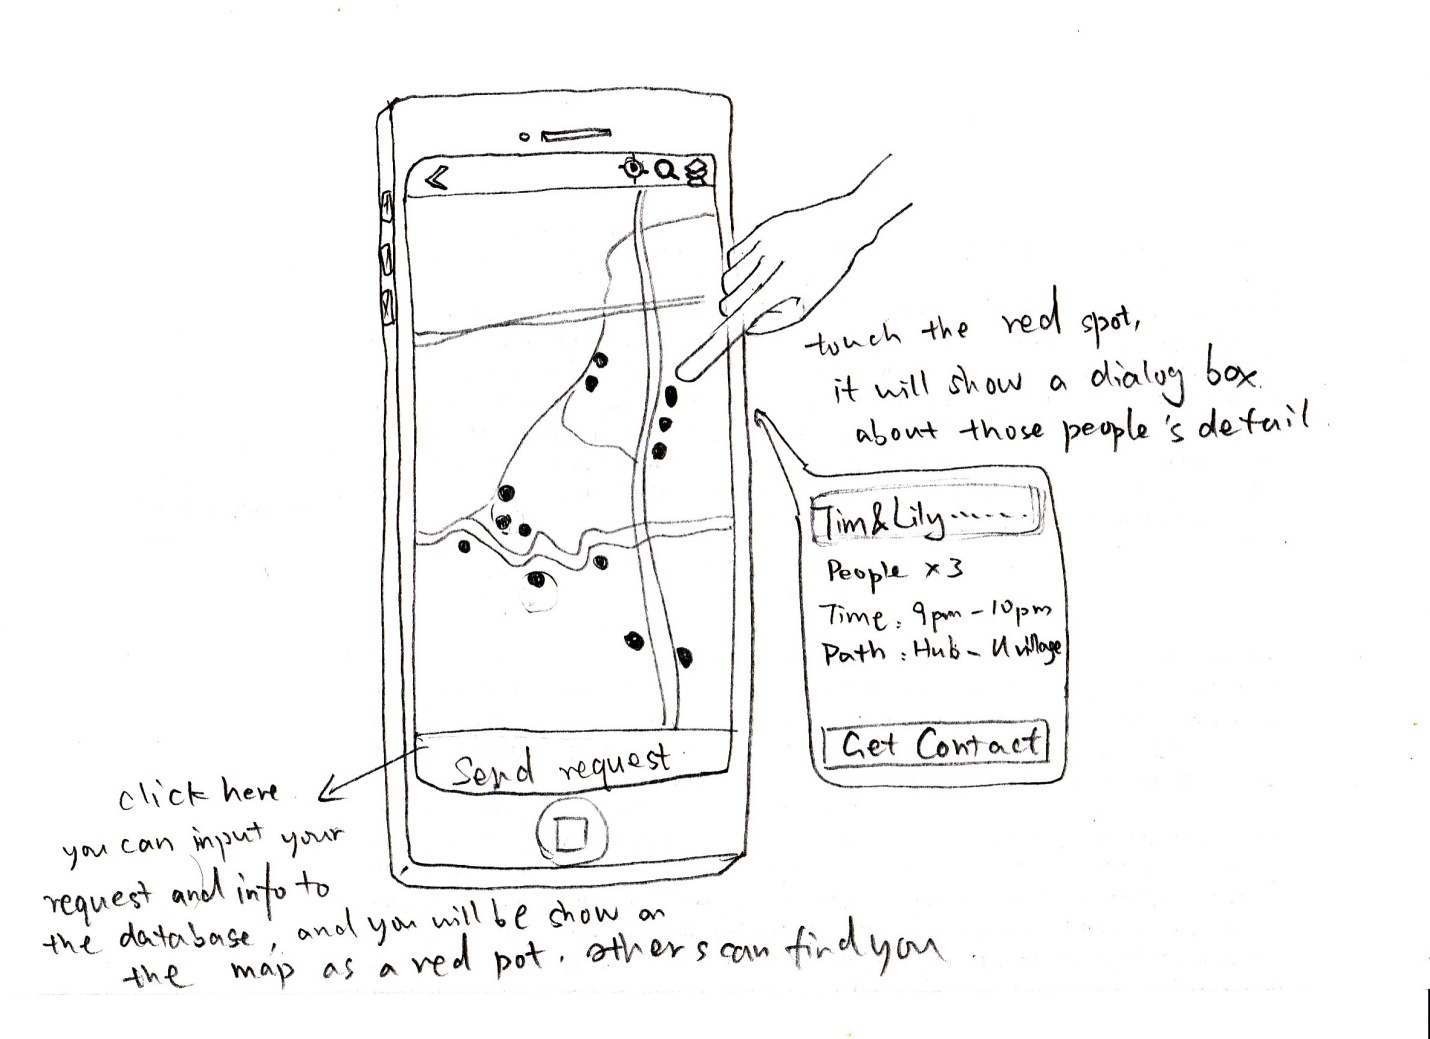 touch the red spot,
it will show a dialog box.
about those people's detail.
Tim&Lily......
People x3
Time: 9pm - 10pm
Path: Hub - U village
Get Contact
Send request
click here
you can input your
request and info to
the database, and you will be show on
the map as a red pot. others can find you.